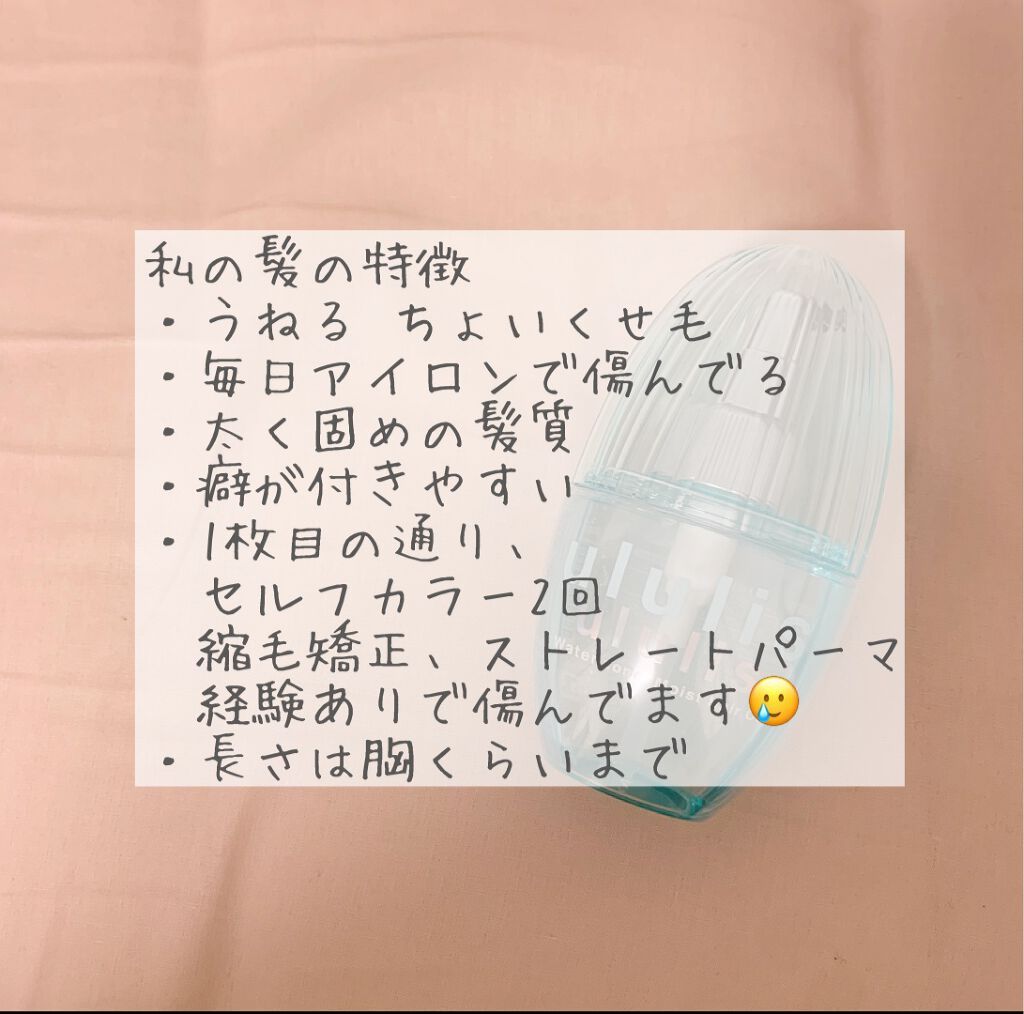 私の髪の特徴
・うねる ちょいくせ毛
・毎日アイロンで傷んでる
・太く固めの髪質
・癖が付きやすい
・1枚目の通り、
セルフカラー2回
縮毛矯正、ストレートパーマ
経験ありで傷んでます🥲
・長さは胸くらいまで
ululis
Water Conc Moist